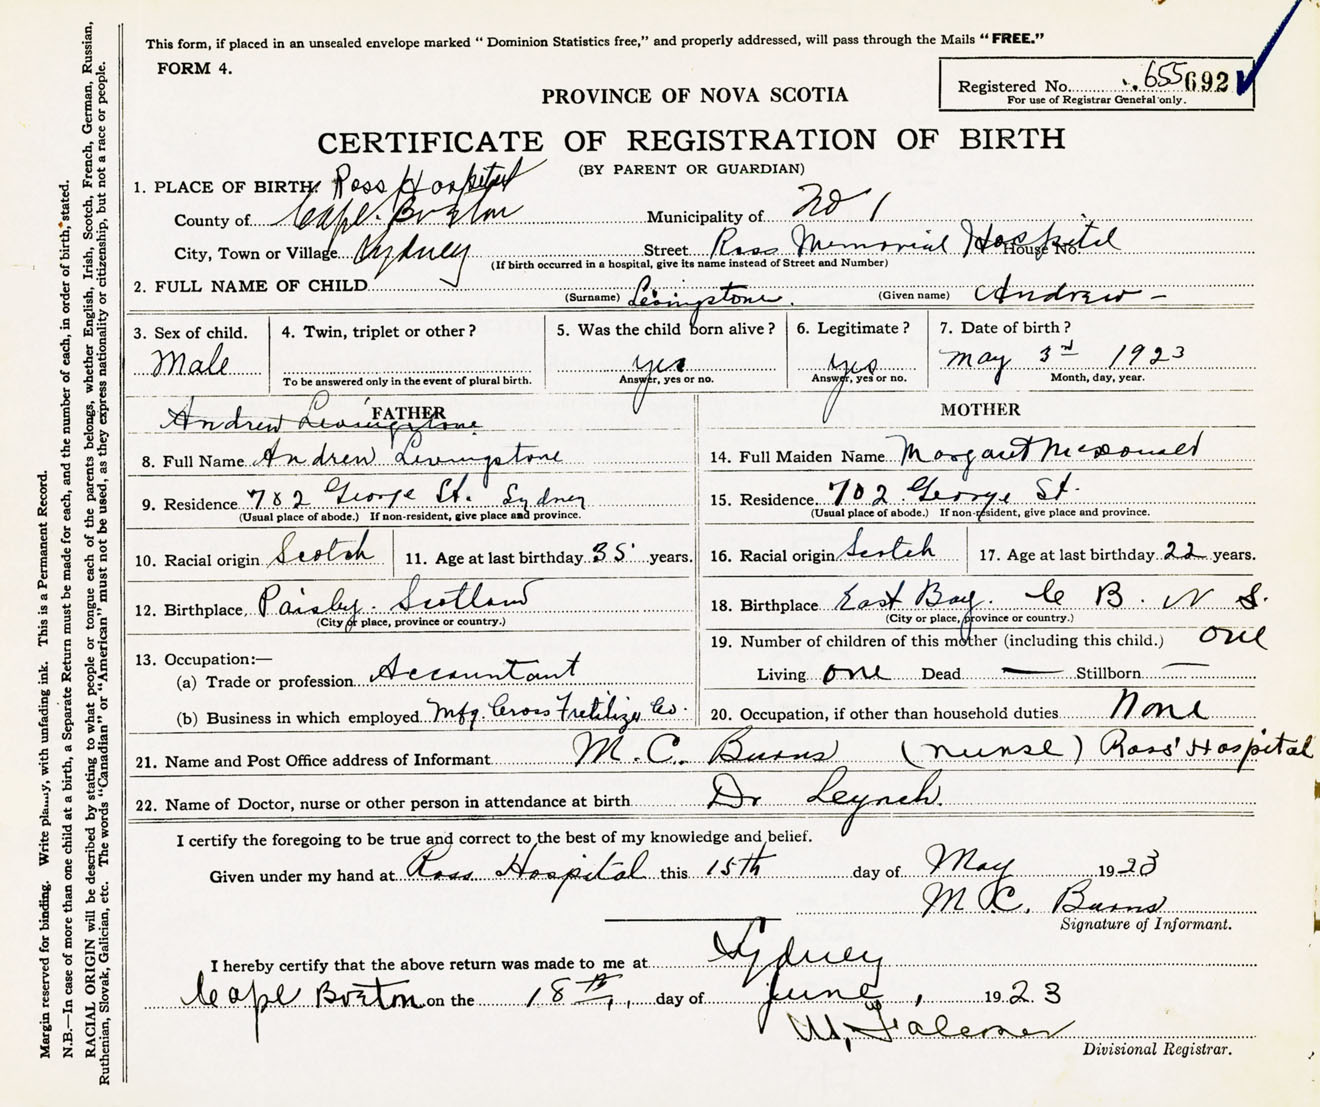 This form, if placed in an unsealed envelope marked “ Dominion Statistics free,” and properly addressed, will pass through the Mails “ FREE.”
FORM 4.
Registered No. 655 692
For use of Registrar General only.
PROVINCE OF NOVA SCOTIA
CERTIFICATE OF REGISTRATION OF BIRTH
(BY PARENT OR GUARDIAN)
1. PLACE OF BIRTH: Ross Hospital
County of Cape Breton Municipality of No 1
City, Town or Village Sydney Street Ross Memorial Hospital House No.
(If birth occurred in a hospital, give its name instead of Street and Number)
2. FULL NAME OF CHILD (Surname) Levingstone. (Given name) Andrew -
3. Sex of child. 4. Twin, triplet or other? 5. Was the child born alive? 6. Legitimate? 7. Date of birth?
Male yes yes May 3rd 1923
To be answered only in the event of plural birth. Answer, yes or no. Answer, yes or no. Month, day, year.
FATHER MOTHER
Andrew Levingstone
8. Full Name Andrew Levingstone 14. Full Maiden Name Margaret McDonald
9. Residence 782 George St. Sydney 15. Residence 702 George St.
(Usual place of abode.) If non-resident, give place and province. (Usual place of abode.) If non-resident, give place and province.
10. Racial origin Scotch 11. Age at last birthday 35 years. 16. Racial origin Scotch 17. Age at last birthday 22 years.
12. Birthplace Paisley. Scotland 18. Birthplace East Bay. C B. N S.
(City or place, province or country.) (City or place, province or country.)
19. Number of children of this mother (including this child.) one
13. Occupation:—
(a) Trade or profession Accountant Living one Dead — Stillborn —
(b) Business in which employed Mfg. Cross Fretilizer Co. 20. Occupation, if other than household duties None
21. Name and Post Office address of Informant M. C. Burns (nurse) Ross' Hospital
22. Name of Doctor, nurse or other person in attendance at birth Dr Leynch.
I certify the foregoing to be true and correct to the best of my knowledge and belief.
Given under my hand at Ross Hospital this 15th day of May 1923
M. C. Burns
Signature of Informant.
I hereby certify that the above return was made to me at Sydney
Cape Breton on the 18th day of June, 1923
Divisional Registrar.
Margin reserved for binding. Write plainly, with unfading ink. This is a Permanent Record.
N.B.—In case of more than one child at a birth, a Separate Return must be made for each, and the number of each, in order of birth, stated.
RACIAL ORIGIN will be described by stating to what people or tongue each of the parents belongs, whether English, Irish, Scotch, French, German, Russian,
Ruthenian, Slovak, Galician, etc. The words “Canadian” or “American” must not be used, as they express nationality or citizenship, but not a race or people.